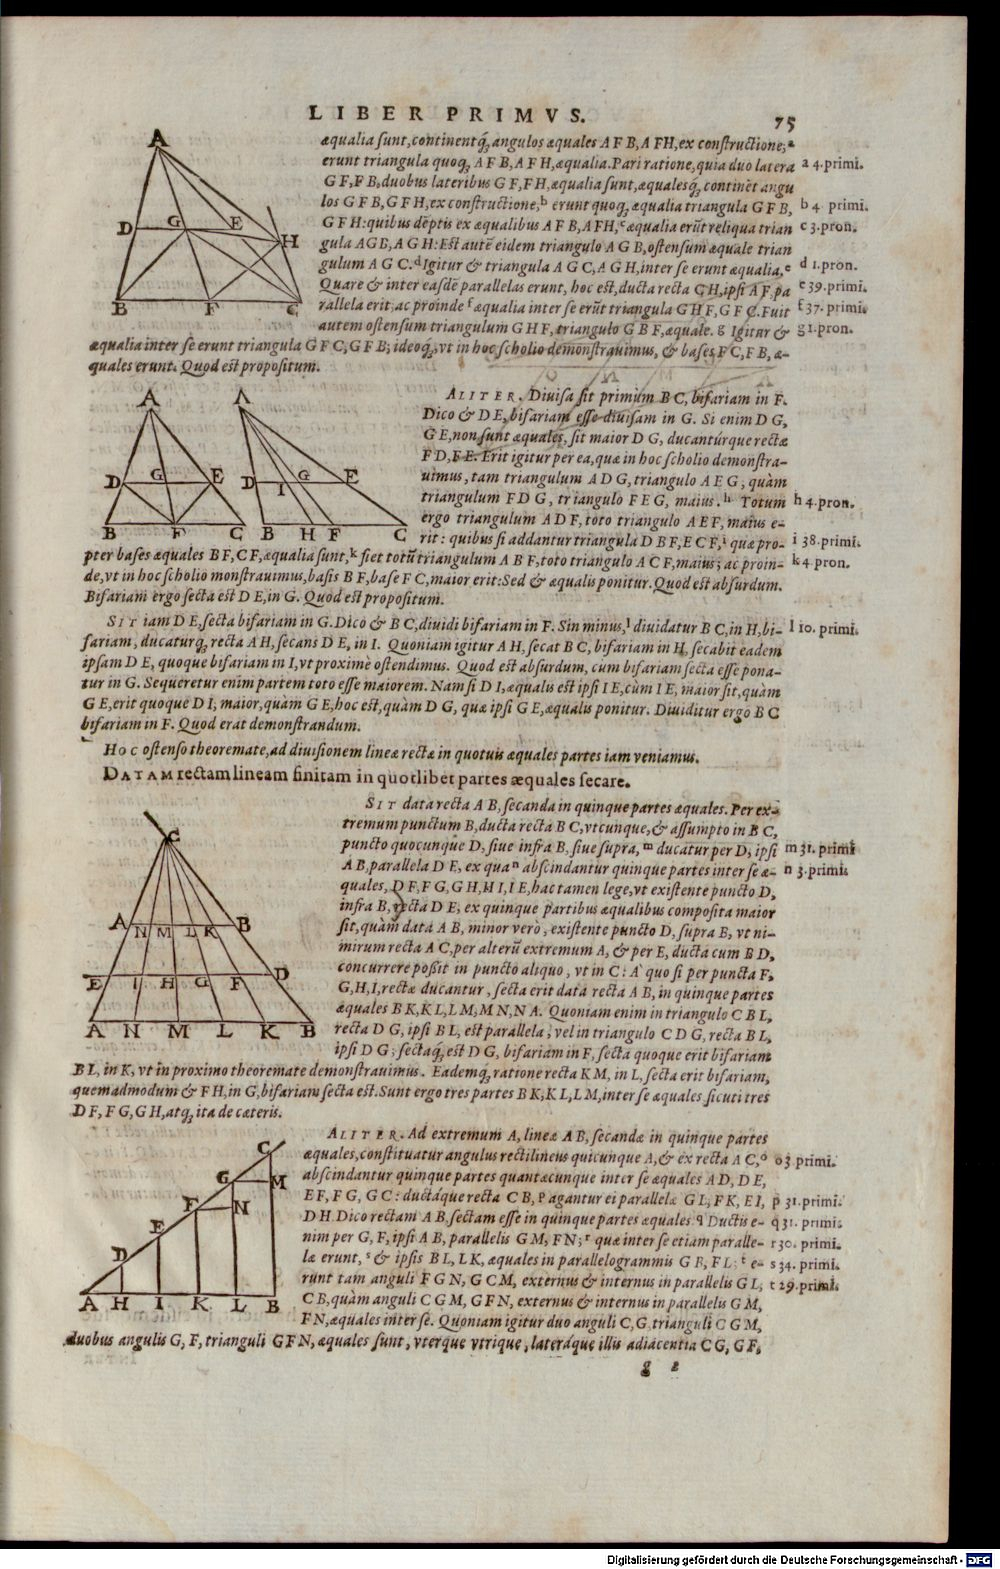 LIBER PRIMVS.
75
æqualia sunt, continentq́; angulos æquales A F B, A F H, ex constructione; ᵃ
erunt triangula quoq; A F B, A F H, æqualia. Pari ratione, quia duo latera
a 4. primi.
G F, F B, duobus lateribus G F, F H, æqualia sunt, æqualesq́; continẽt angu
los G F B, G F H, ex constructione, ᵇ erunt quoq; æqualia triangula G F B,
b 4 primi.
G F H: quibus dẽptis ex æqualibus A F B, A F H, ᶜ æqualia erũt reliqua trian
c 3. pron.
gula A G B, A G H: Est autẽ eidem triangulo A G B, ostensum æquale trian
gulum A G C. ᵈ Igitur & triangula A G C, A G H, inter se erunt æqualia. ᵉ
d 1. pron.
Quare & inter easdẽ parallelas erunt, hoc est, ducta recta C H, ipsi A F, pa
e 39. primi.
rallela erit; ac proinde ᶠ æqualia inter se erũt triangula G H F, G F C. Fuit
f 37. primi
autem ostensum triangulum G H F, triangulo G B F, æquale. g Igitur &
g 1. pron.
æqualia inter se erunt triangula G F C, G F B; ideoq́;, vt in hoc scholio demonstrauimus, & bases F C, F B, æ-
quales erunt. Quod est propositum.
A
D
G
E
H
B
F
C
ALITER. Diuisa sit primùm B C, bifariam in F.
Dico & D E, bifariam esse diuisam in G. Si enim D G,
G E, non sunt æquales, sit maior D G, ducantúrque rectæ
F D, F E. Erit igitur per ea, quæ in hoc scholio demonstra-
uimus, tam triangulum A D G, triangulo A E G, quàm
triangulum F D G, triangulo F E G, maius. ʰ Totum
h 4. pron.
ergo triangulum A D F, toto triangulo A E F, maius e-
rit: quibus si addantur triangula D B F, E C F, ⁱ quæ pro-
i 38. primi.
pter bases æquales B F, C F, æqualia sunt, ᵏ fiet totũ triangulum A B F, toto triangulo A C F, maius; ac proin-
k 4. pron.
de, vt in hoc scholio monstrauimus, basis B F, base F C, maior erit: Sed & æqualis ponitur. Quod est absurdum.
Bifariam ergo secta est D E, in G. Quod est propositum.
A
D
G
E
B
F
C
A
D
I
G
E
B
H
F
C
SIT iam D E, secta bifariam in G. Dico & B C, diuidi bifariam in F. Sin minus, ˡ diuidatur B C, in H, bi-
l 10. primi.
fariam, ducaturq́; recta A H, secans D E, in I. Quoniam igitur A H, secat B C, bifariam in H, secabit eadem
ipsam D E, quoque bifariam in I, vt proximè ostendimus. Quod est absurdum, cùm bifariam secta esse pona-
tur in G. Sequeretur enim partem toto esse maiorem. Nam si D I, æqualis est ipsi I E, cùm I E, maior sit, quàm
G E, erit quoque D I, maior, quàm G E, hoc est, quàm D G, quæ ipsi G E, æqualis ponitur. Diuiditur ergo B C
bifariam in F. Quod erat demonstrandum.
HOC ostenso theoremate, ad diuisionem lineæ rectæ in quotuis æquales partes iam veniamus.
DATAM rectam lineam finitam in quotlibet partes æquales secare.
SIT data recta A B, secanda in quinque partes æquales. Per ex-
tremum punctum B, ducta recta B C, vtcunque, & assumpto in B C,
puncto quocunque D, siue infra B, siue supra, ᵐ ducatur per D, ipsi
m 31. primi
A B, parallela D E, ex qua ⁿ abscindantur quinque partes inter se æ-
n 3. primi.
quales, D F, F G, G H, H I, I E, hac tamen lege, vt existente puncto D,
infra B, recta D E, ex quinque partibus æqualibus composita maior
sit, quàm data A B, minor verò, existente puncto D, supra B, vt ni-
mirum recta A C, per alterũ extremum A, & per E, ducta cum B D,
concurrere poßit in puncto aliquo, vt in C: A' quo si per puncta F,
G, H, I, rectæ ducantur, secta erit data recta A B, in quinque partes
æquales B K, K L, L M, M N, N A. Quoniam enim in triangulo C B L,
recta D G, ipsi B L, est parallela; vel in triangulo C D G, recta B L,
ipsi D G; sectaq́; est D G, bifariam in F, secta quoque erit bifariam
B L, in K, vt in proximo theoremate demonstrauimus. Eademq́; ratione recta K M, in L, secta erit bifariam,
quemadmodum & F H, in G, bifariam secta est. Sunt ergo tres partes B K, K L, L M, inter se æquales sicuti tres
D F, F G, G H, atq; ita de cæteris.
C
A
N
M
L
K
B
E
I
H
G
F
D
A
N
M
L
K
B
ALITER. Ad extremum A, lineæ A B, secandæ in quinque partes
æquales, constituatur angulus rectilineus quicunque A, & ex recta A C, ᵒ
o 3. primi.
abscindantur quinque partes quantæcunque inter se æquales A D, D E,
E F, F G, G C: ductáque recta C B, ᵖ agantur ei parallelæ G L, F K, E I,
p 31. primi.
D H. Dico rectam A B, sectam esse in quinque partes æquales. q Ductis e-
q 31. primi.
nim per G, F, ipsi A B, parallelis G M, F N; ʳ quæ inter se etiam paralle-
r 30. primi.
læ erunt, ˢ & ipsis B L, L K, æquales in parallelogrammis G B, F L: ᵗ e-
s 34. primi.
runt tam anguli F G N, G C M, externus & internus in parallelis G L,
t 29. primi.
C B, quàm anguli C G M, G F N, externus & internus in parallelis G M,
F N, æquales inter se. Quoniam igitur duo anguli C, G, trianguli C G M,
duobus angulis G, F, trianguli G F N, æquales sunt, vterque vtrique, lateráque illis adiacentia C G, G F,
C
G
M
F
N
E
D
A
H
I
K
L
B
g 2
Digitalisierung gefördert durch die Deutsche Forschungsgemeinschaft - DFG